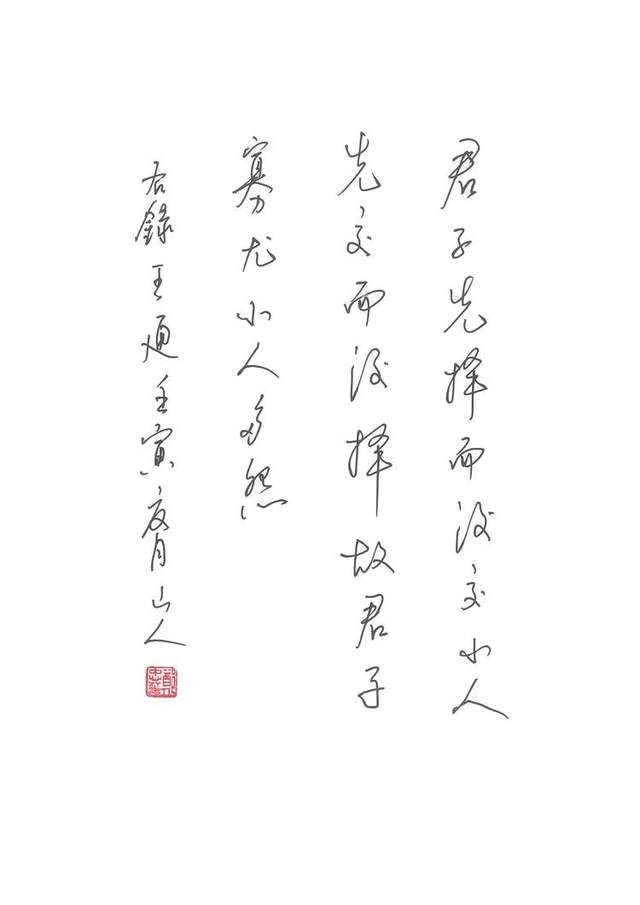 君子先择而后交小人
先交而后择故君子
寡尤小人多怨
右錄王通壬寅夏月山人